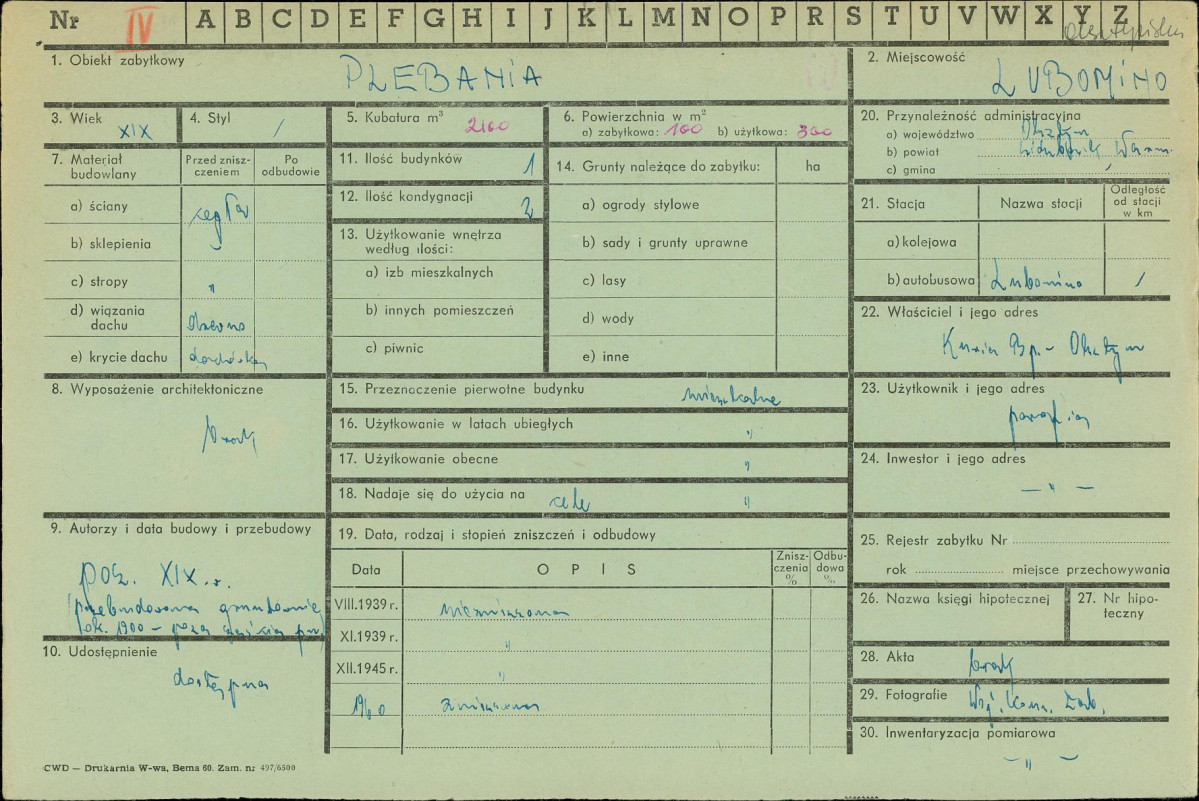 Nr IV A B C D E F G H I J K L M N O P R S T U V W X Y Z
1. Obiekt zabytkowy PLEBANIA
2. Miejscowość LUBOMINO
3. Wiek XIX
4. Styl /
5. Kubatura m³ 2100
6. Powierzchnia w m²
a) zabytkowa: 160 b) użytkowa: 300
7. Materiał budowlany
Przed zniszczeniem
Po odbudowie
a) ściany cegła
b) sklepienia
c) stropy "
d) wiązania dachu drewno
e) krycie dachu dachówka
8. Wyposażenie architektoniczne
brak
9. Autorzy i data budowy i przebudowy
pocz. XIX w.
(przebudowana gruntownie
ok. 1900 –
10. Udostępnienie
dostępna
11. Ilość budynków 1
12. Ilość kondygnacji 2
13. Użytkowanie wnętrza
według ilości:
a) izb mieszkalnych
b) innych pomieszczeń
c) piwnic
14. Grunty należące do zabytku: ha
a) ogrody stylowe
b) sady i grunty uprawne
c) lasy
d) wody
e) inne
15. Przeznoczenie pierwotne budynku mieszkalne
16. Użytkowanie w latach ubiegłych "
17. Użytkowanie obecne "
18. Nadaje się do użycia na cele "
19. Data, rodzaj i stopień zniszczeń i odbudowy
Data OPIS Zniszczenia % Odbudowa %
VIII.1939 r. niezniszczona
XI.1939 r. "
XII.1945 r. "
1960 zniszczona
20. Przynależność administracyjna
a) województwo Olsztyn
b) powiat Lidzbark Warm.
c) gmina
21. Stacja Nazwa stacji Odległość od stacji w km
a) kolejowa
b) autobusowa Lubomino /
22. Właściciel i jego adres
Kuria Bp. – Olsztyn
23. Użytkownik i jego adres
parafia
24. Inwestor i jego adres
— " —
25. Rejestr zabytku Nr
rok miejsce przechowywania
26. Nazwa księgi hipotecznej
27. Nr hipoteczny
28. Akta brak
29. Fotografie Woj. Kons. Zab.
30. Inwentaryzacja pomiarowa
– " –
CWD — Drukarnia W-wa, Bema 60. Zam. nr 497/6500